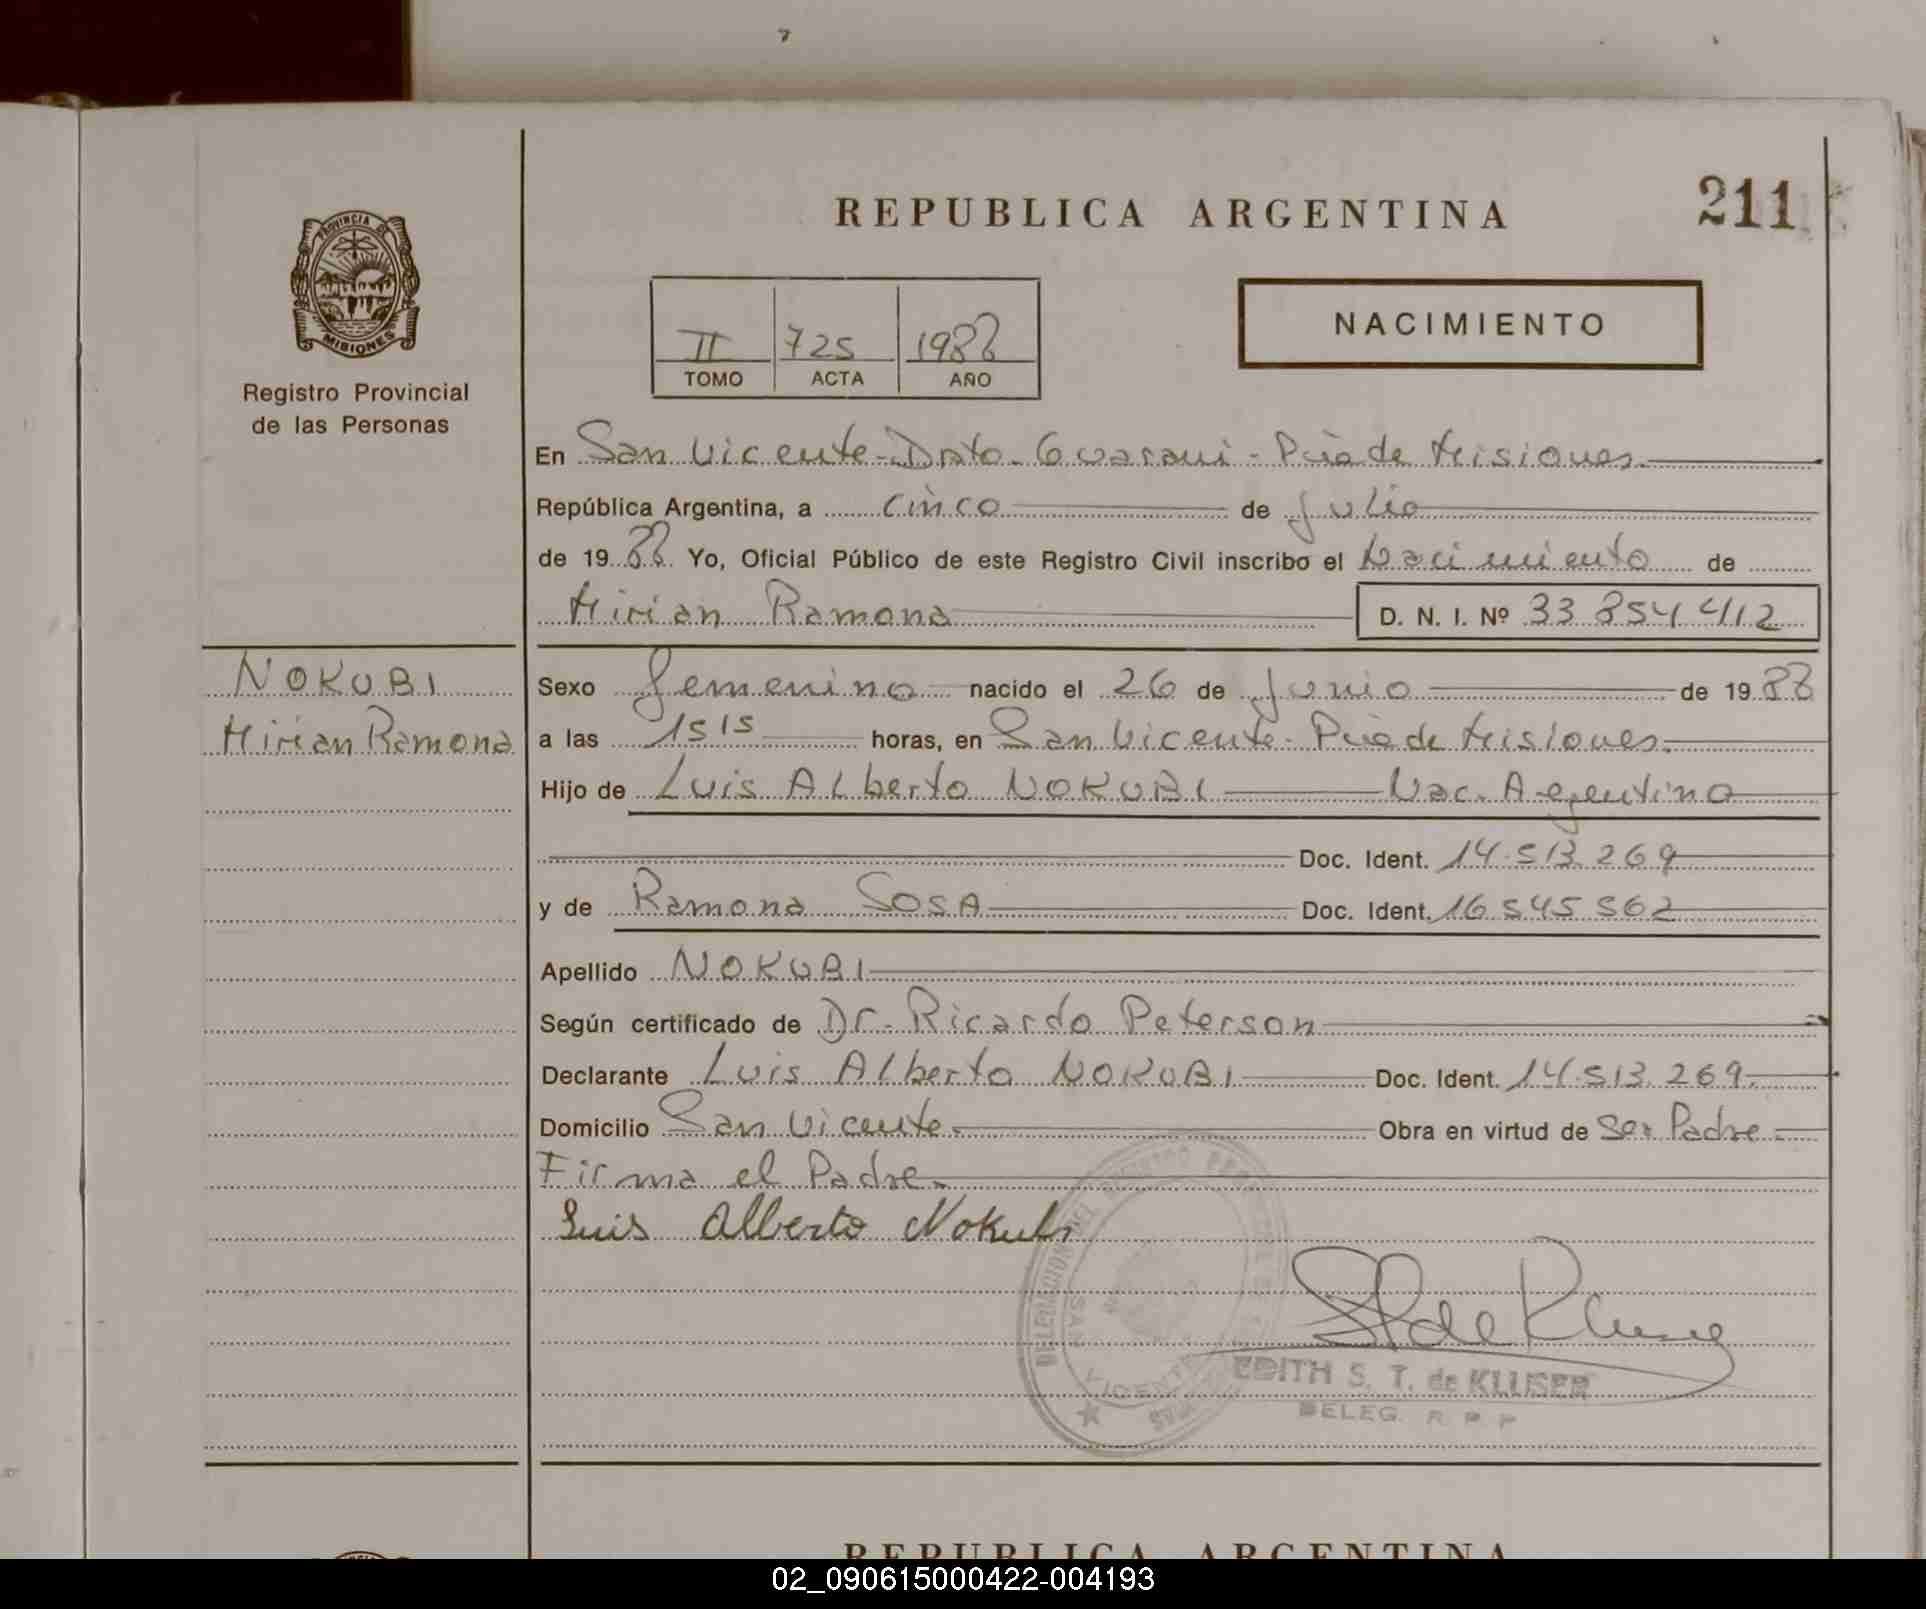 211
REPUBLICA ARGENTINA
PROVINCIA DE
MISIONES
Registro Provincial
de las Personas
II 725 1988
TOMO ACTA AÑO
NACIMIENTO
En San Vicente - Dpto. Guaraní - Pcia de Misiones.
República Argentina, a cinco de Julio
de 1988 Yo, Oficial Público de este Registro Civil inscribo el Nacimiento de
Mirian Ramona D. N. I. Nº 33 854 412
NOKUBI
Mirian Ramona
Sexo femenino nacido el 26 de Junio de 1988
a las 1515 horas, en San Vicente - Pcia de Misiones.
Hijo de Luis Alberto NOKUBI Nac. Argentina
Doc. Ident. 14.513.269
y de Ramona SOSA Doc. Ident. 16.545.562
Apellido NOKUBI
Según certificado de Dr. Ricardo Peterson
Declarante Luis Alberto NOKUBI Doc. Ident. 14.513.269.
Domicilio San Vicente. Obra en virtud de Ser Padre.
Firma el Padre.
Luis Alberto Nokubi
SAN VICENTE
EDITH S. T. de KLUSER
DELEG. R. P. P.
REPUBLICA ARGENTINA
02_090615000422-004193